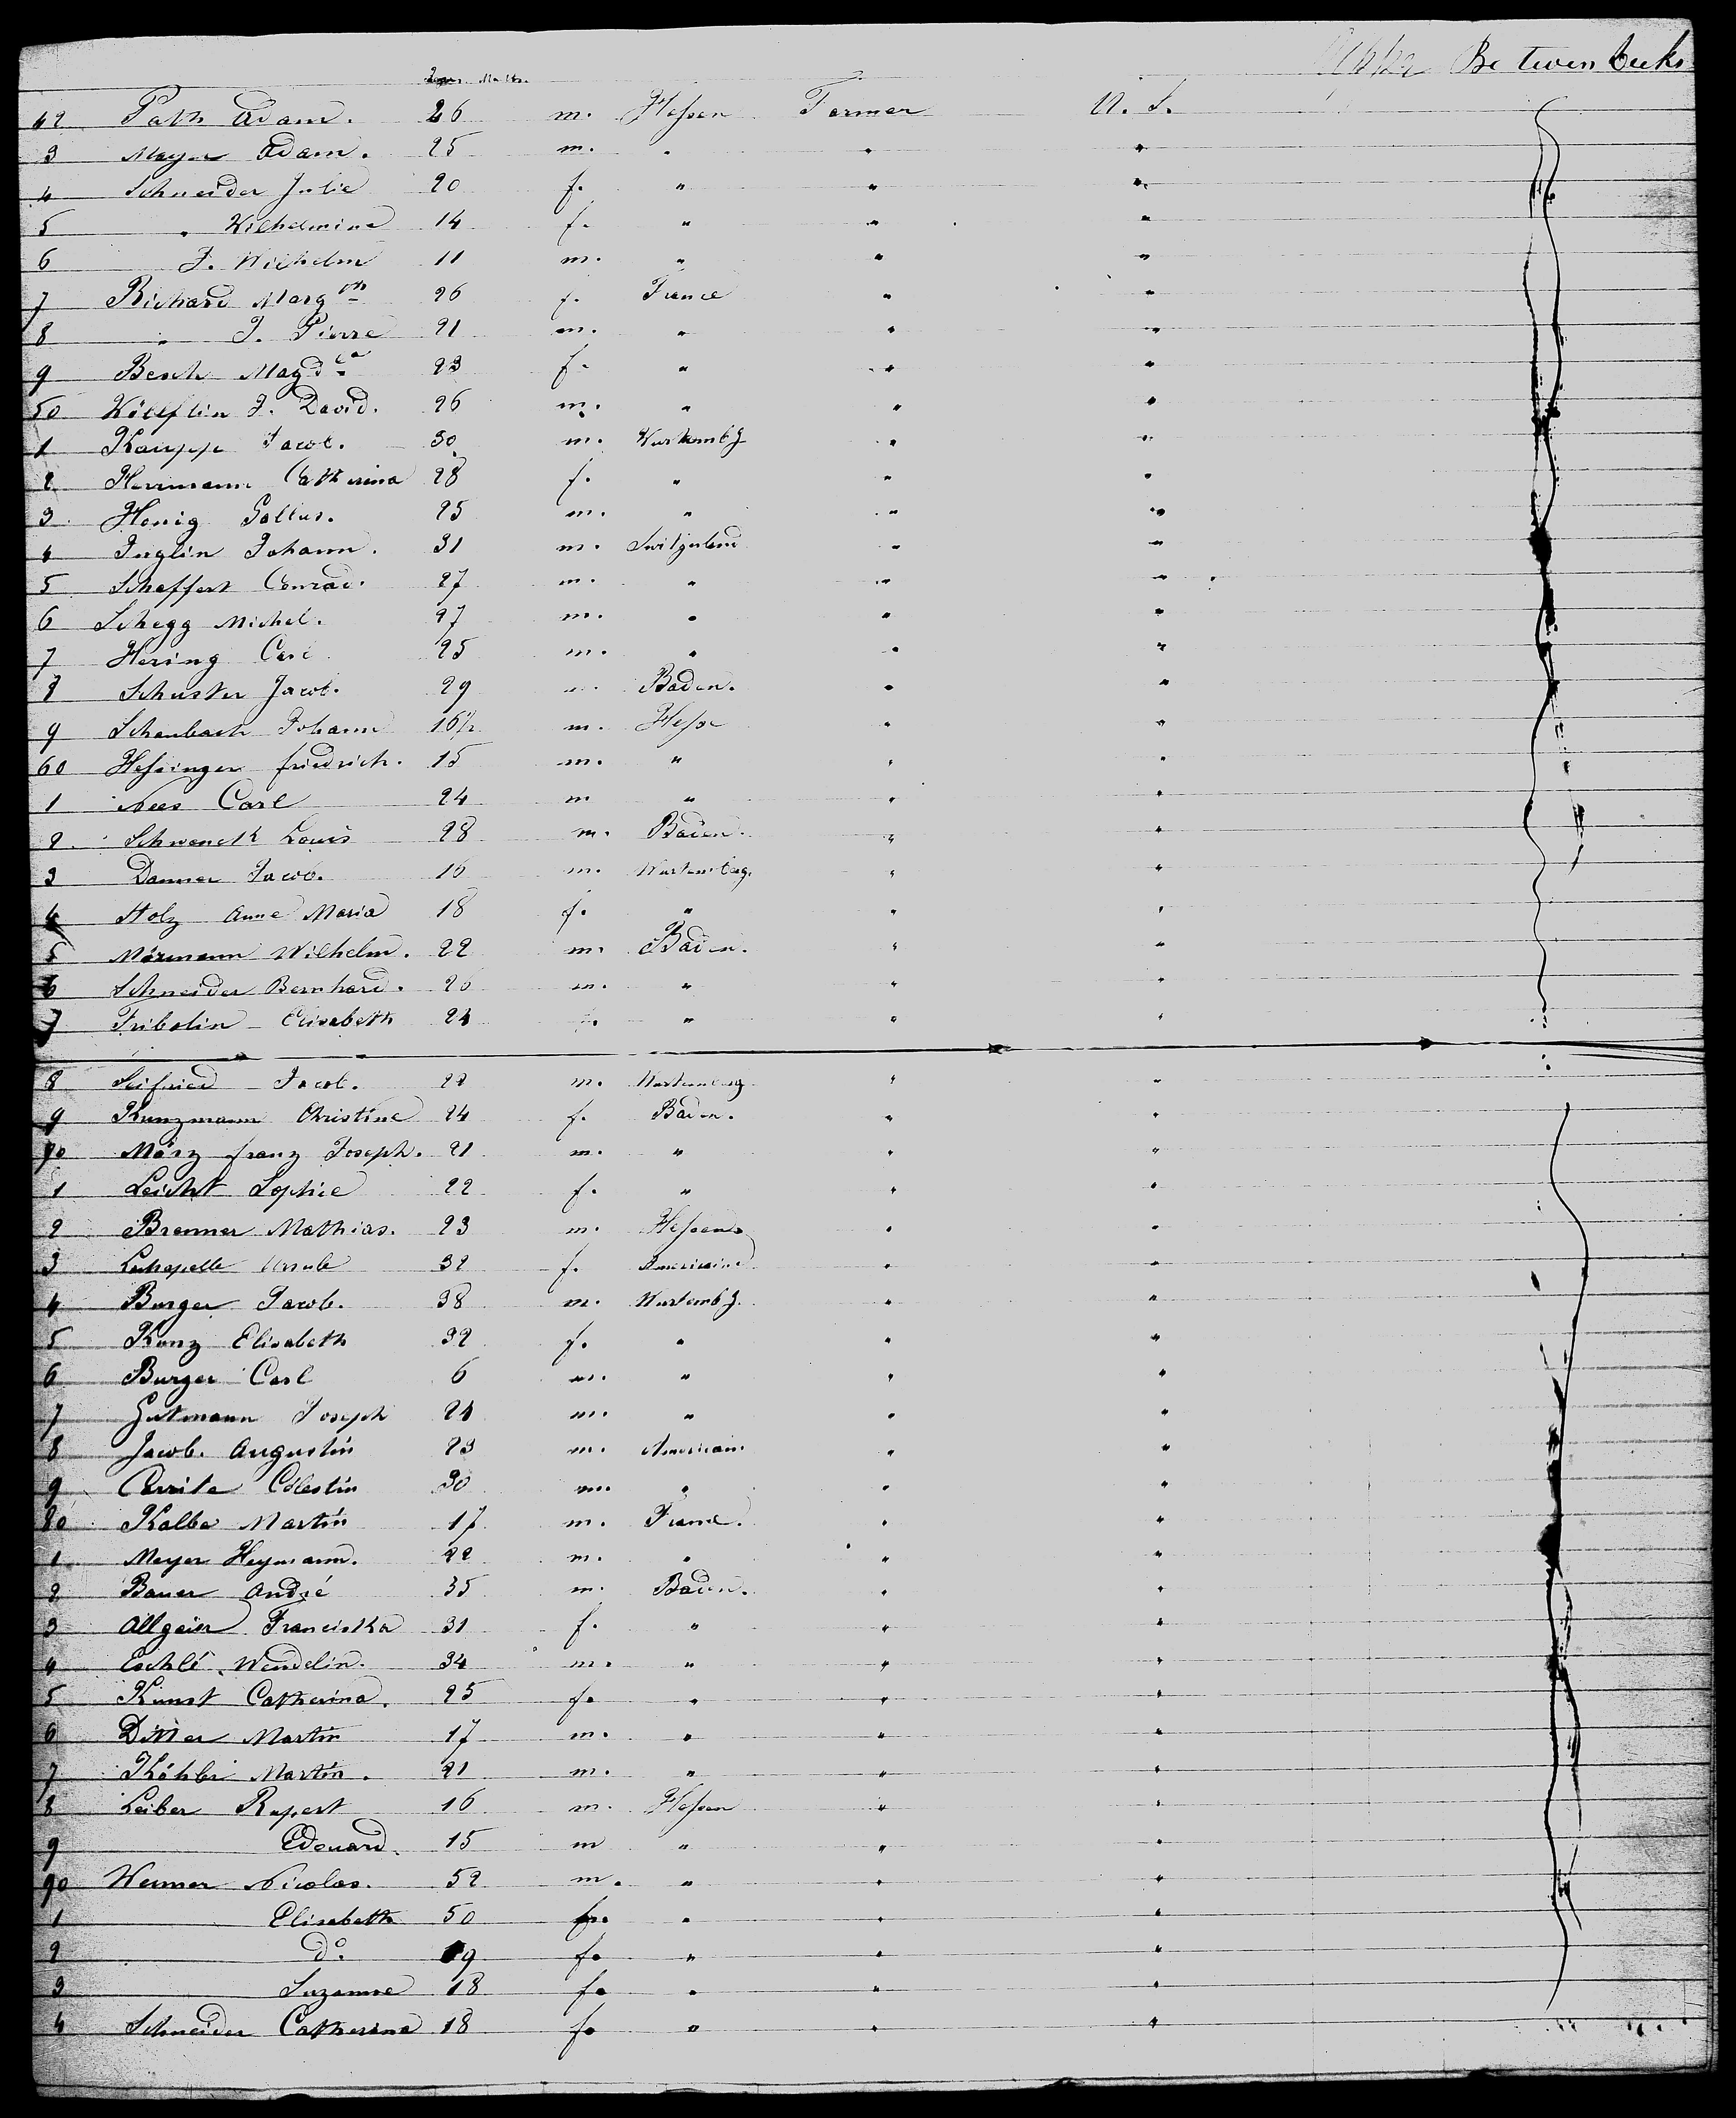 Between Decks
Years Months
42 Path Adam. 26 m. Hessen Farmer U. S.
3 Mayer Adam. 25 m. " " "
4 Schneider Julie 20 f. " " "
5 " Wilhelmine 14 f. " " "
6 J. Wilhelm 11 m. " " "
7 Richard Margth 26 f. France " "
8 " J. Pierre 21 m. " " "
9 Besch Magdea 23 f. " " "
50 J. David. 26 m. " " "
1 Kaupp Jacob. 30 m. Wurtembg " "
2 Herrmann Catherina 28 f. " " "
3 Honig Gallus. 25 m. " " "
4 Inglin Johann. 31 m. Switzerland " "
5 Scheffert Conrad. 27 m. " " "
6 Schegg Michel. 27 m. " " "
7 Hering Carl 25 m. " " "
8 Schuster Jacob. 29 m. Baden. " "
9 Schenbach Johann 16½ m. Hesse " "
60 Hessinger friedrich. 15 m. " " "
1 Nees Carl 24 m " " "
2 Schwenck Louis 28 m. Baden. " "
3 Danner Jacob. 16 m. Wurtemberg. " "
4 Stolz Anne Maria 18 f. " " "
5 Mörmann Wilhelm. 22 m. Baden. " "
6 Schneider Bernhard. 26 m. " " "
7 Fribolin Elisabeth 24 f. " " "
8 Seifried Jacob. 22 m. Wurtemberg " "
9 Kunzmann Christine 24 f. Baden. " "
70 März franz Joseph. 21 m. " " "
1 Leicht Sophie 22 f. " " "
2 Brenner Mathias. 23 m. Hessen " "
3 Lachapelle Ursule 32 f. Americaine " "
4 Burger Jacob. 38 m. Wurtembg. " "
5 Kunz Elisabeth 32 f. " " "
6 Burger Carl 6 m. " " "
7 Gutmann Joseph 24 m. " " "
8 Jacob. Augustin 23 m. American. " "
9 Cerrite Célestin 30 m. " " "
80 Kalbe Martin 17 m. France. " "
1 Meyer Heymann. 22 m. " " "
2 Bauer André 35 m. Baden. " "
3 Allgeier Franciska 31 f. " " "
4 Eschlé Wendelin. 34 m. " " "
5 Kunst Catherina. 25 f. " " "
6 Ditter Martin 17 m. " " "
7 Köhler Martin. 21 m. " " "
8 Leiber Rupert 16 m. Hessen " "
9 Edouard. 15 m " " "
90 Weimer Nicolas. 52 m. " " "
1 Elisabeth 50 f. " " "
2 do. 19 f. " " "
3 Suzanne 18 f. " " "
4 Schneider Catherine 18 f. " " "